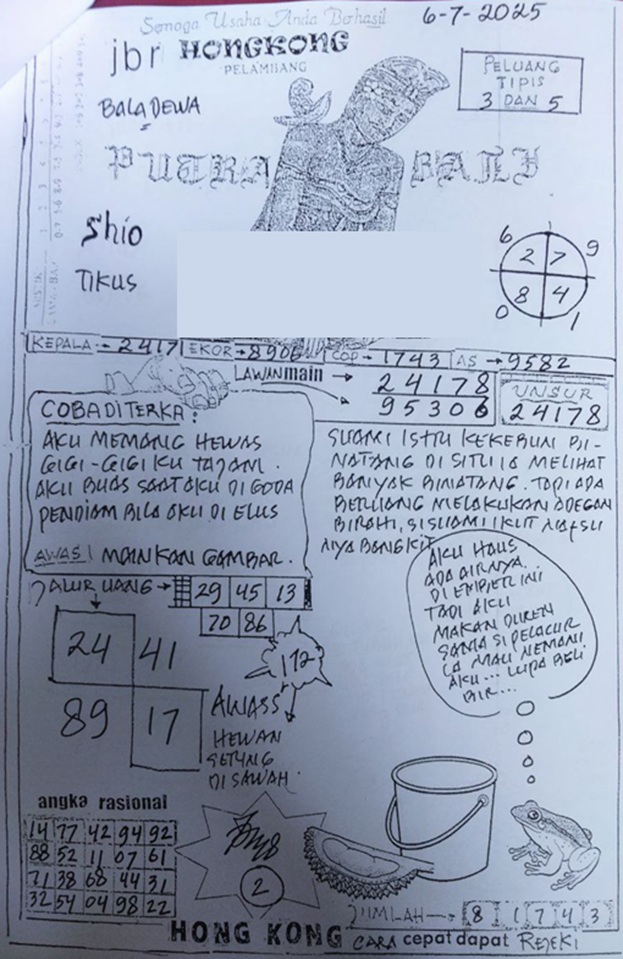 Semoga Usaha Anda Berhasil
6-7-2025
jbr HONGKONG
PELAMBANG
BALADEWA
PELUANG
TIPIS
3 DAN 5
PUTRA BALI
Shio
TIKUS
6 9
2 7
8 4
0 1
KEPALA → 24171 EKOR → 8906 COP → 1743 AS → 9582
LAWAN main → 24178
95306
UNSUR
24178
COBA DITERKA :
AKU MEMANG HEWAS
GIGI-GIGI KU TAJAM.
AKU BUAS SAAT AKU DI GODA
PENDIAM BILA AKU DI ELUS
AWAS! MAINKAN GAMBAR.
SUAMI ISTRI KEKEBUN BI-
NATANG DI SITU IA MELIHAT
BANYAK BINATANG. TAPI ADA
BERUANG MELAKUKAN ADEGAN
BIRAHI, SI SUAMI IKUT NAFSU
NYA BANGKIT
JALUR UANG → 29 45 13
70 86
24 41
89 17
172
AWASS
HEWAN
DISAWAH.
AKU HAUS
ADA AIRNYA.
DI EMBER INI
TADI AKU
MAKAN DUREN
SAMA SI PELACUR
IA MAU NEMANI
AKU... LUPA BELI
BIR...
angka rasional
14 77 42 94 92
88 52 11 07 61
71 38 68 44 31
32 54 04 98 22
2
JUMLAH → 8 1 7 4 3
HONG KONG CARA cepat dapat REJEKI